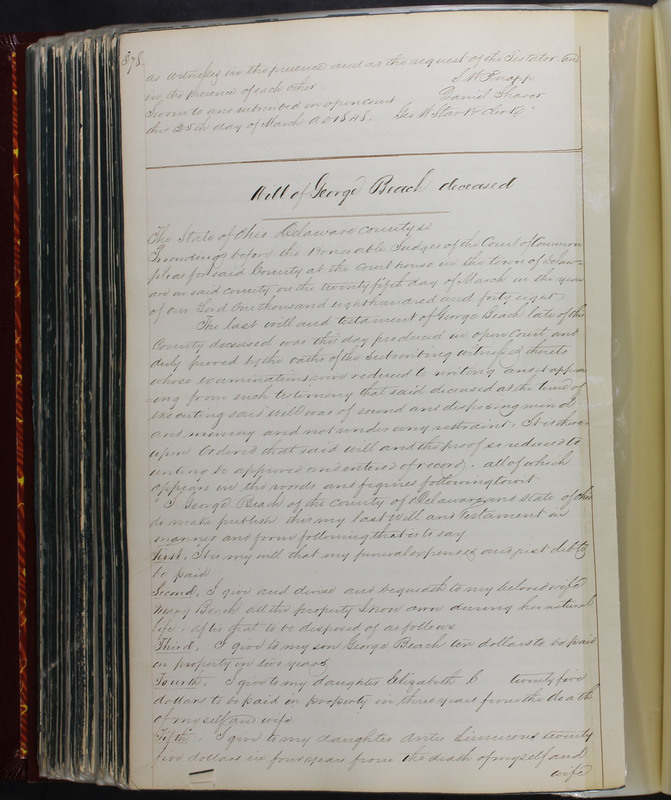 378.
as witnesses in the presence and at the request of the Testator and
in the presence of each other
S W Knapp
Daniel Shaver
Sworn to and subscribed in open court
this 25th day of March AD 1848. Geo W Stark Clerk
Will of George Beach deceased
The State of Ohio Delaware County ss
Proceedings before the Honorable Judges of the Court of Common
pleas for said County at the Court house in the town of Delaw-
are in said County on the twenty fifth day of March in the year
of our Lord One thousand eight hundred and forty eight
The last will and testament of George Beach late of this
County deceased was this day produced in open Court and
duly proved by the oaths of the subscribing witnesses thereto
whose examinations were reduced to writing and it appear
-ing from such testimony that said deceased at the time of
executing said Will was of sound and disposing mind
and memory and not under any restraint, It is there
upon Ordered that said will and the proof so reduced to
writing be approved and entered of record. all of which
appears in the words and figures following towit
"I George Beach of the County of Delaware and state of Ohio
do make publish this my last Will and Testament in
manner and form following that is to say
First, It is my will that my funeral expenses and just debts
be paid
Second, I give and devise and bequeath to my beloved wife
Mary Beach all the property I now own during her natural
life, after that to be disposed of as follows
Third, I give to my son George Beach ten dollars to be paid
in property in two years
Fourth. I give to my daughter Elizabeth C twenty five
dollars to be paid in property in three years from the death
of myself and wife
Fifth. I give to my daughter Simmons twenty
five dollars in four years from the death of myself and
wife